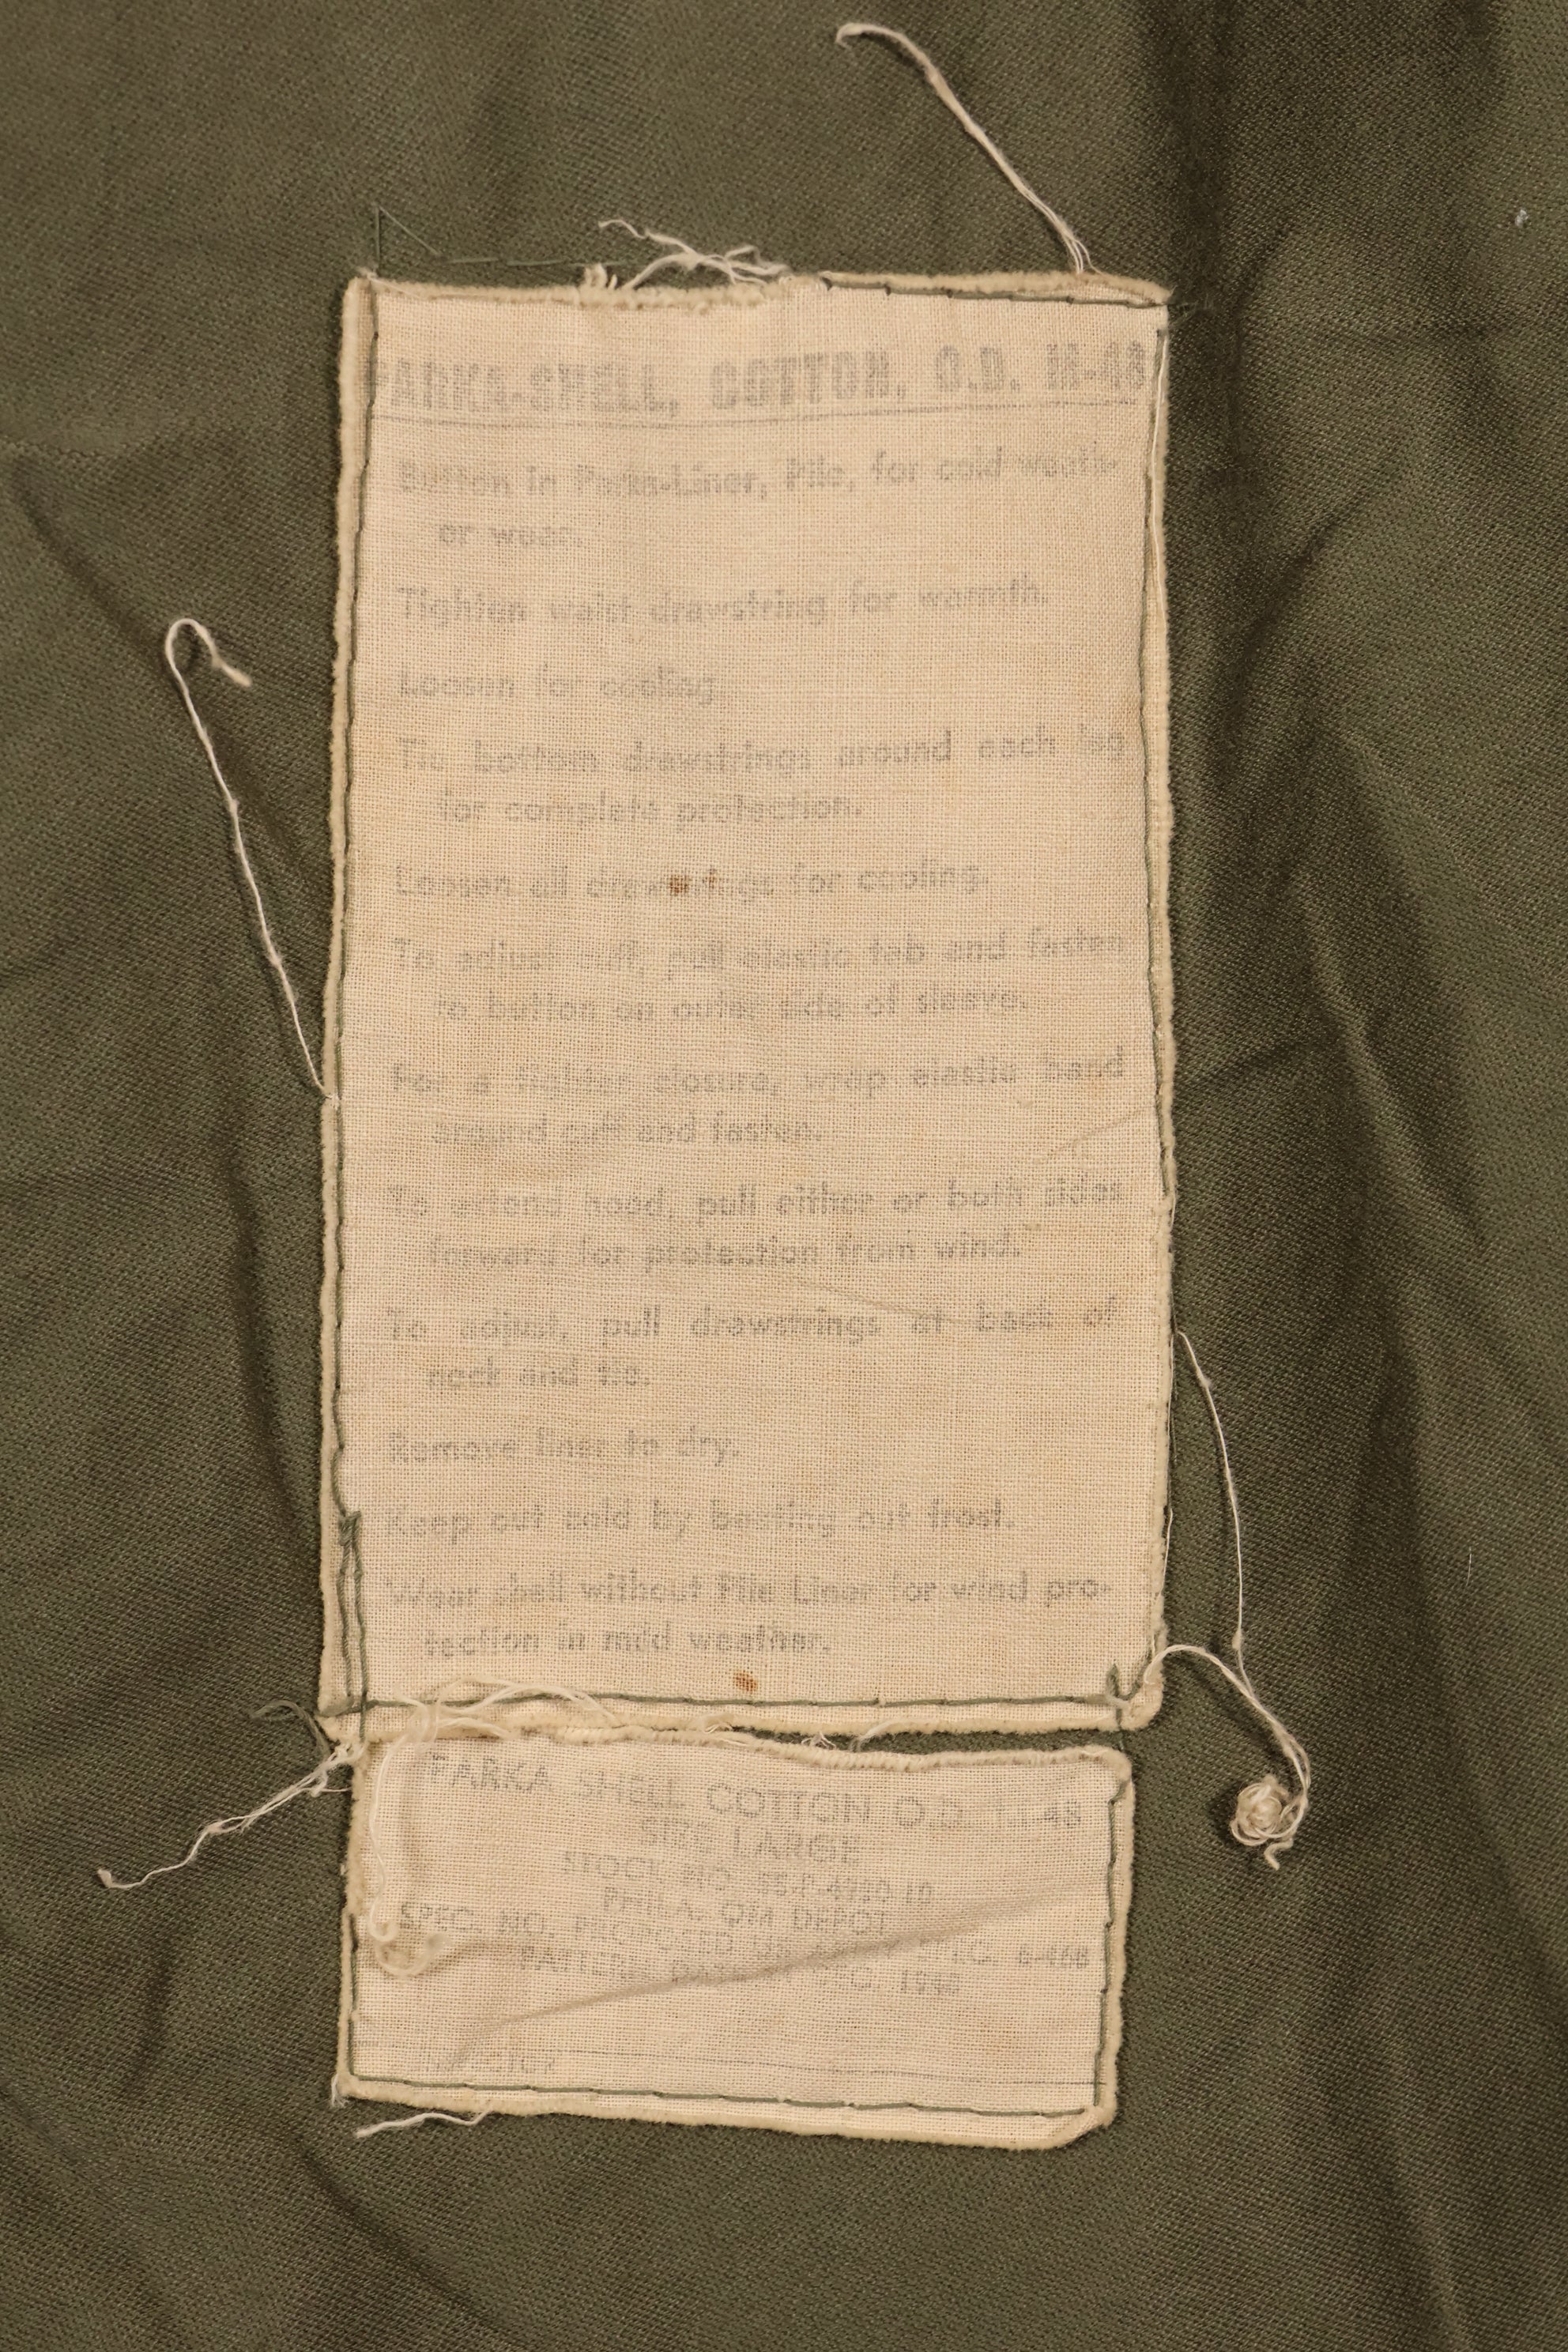 PARKA-SHELL, COTTON, O.D. M-48
Button in Parka-Liner, Pile, for cold weath-
er wear.
Tighten waist drawstring for warmth.
Loosen for cooling.
Tie bottom drawstrings around each leg
for complete protection.
Loosen all drawstrings for cooling.
To adjust cuff, pull elastic tab and fasten
to button on outer side of sleeve.
For a tighter closure, wrap elastic band
around cuff and fasten.
To extend hood, pull either or both sides
forward for protection from wind.
To adjust, pull drawstrings at back of
neck and tie.
Remove liner to dry.
Keep out cold by beating out frost.
Wear shell without Pile Liner for wind pro-
tection in mild weather.
PARKA SHELL COTTON O.D. M-48
SIZE LARGE
STOCK NO.
PHILA. QM DEPOT
SPEC. NO.
PATTERN DATE
INSPECTOR